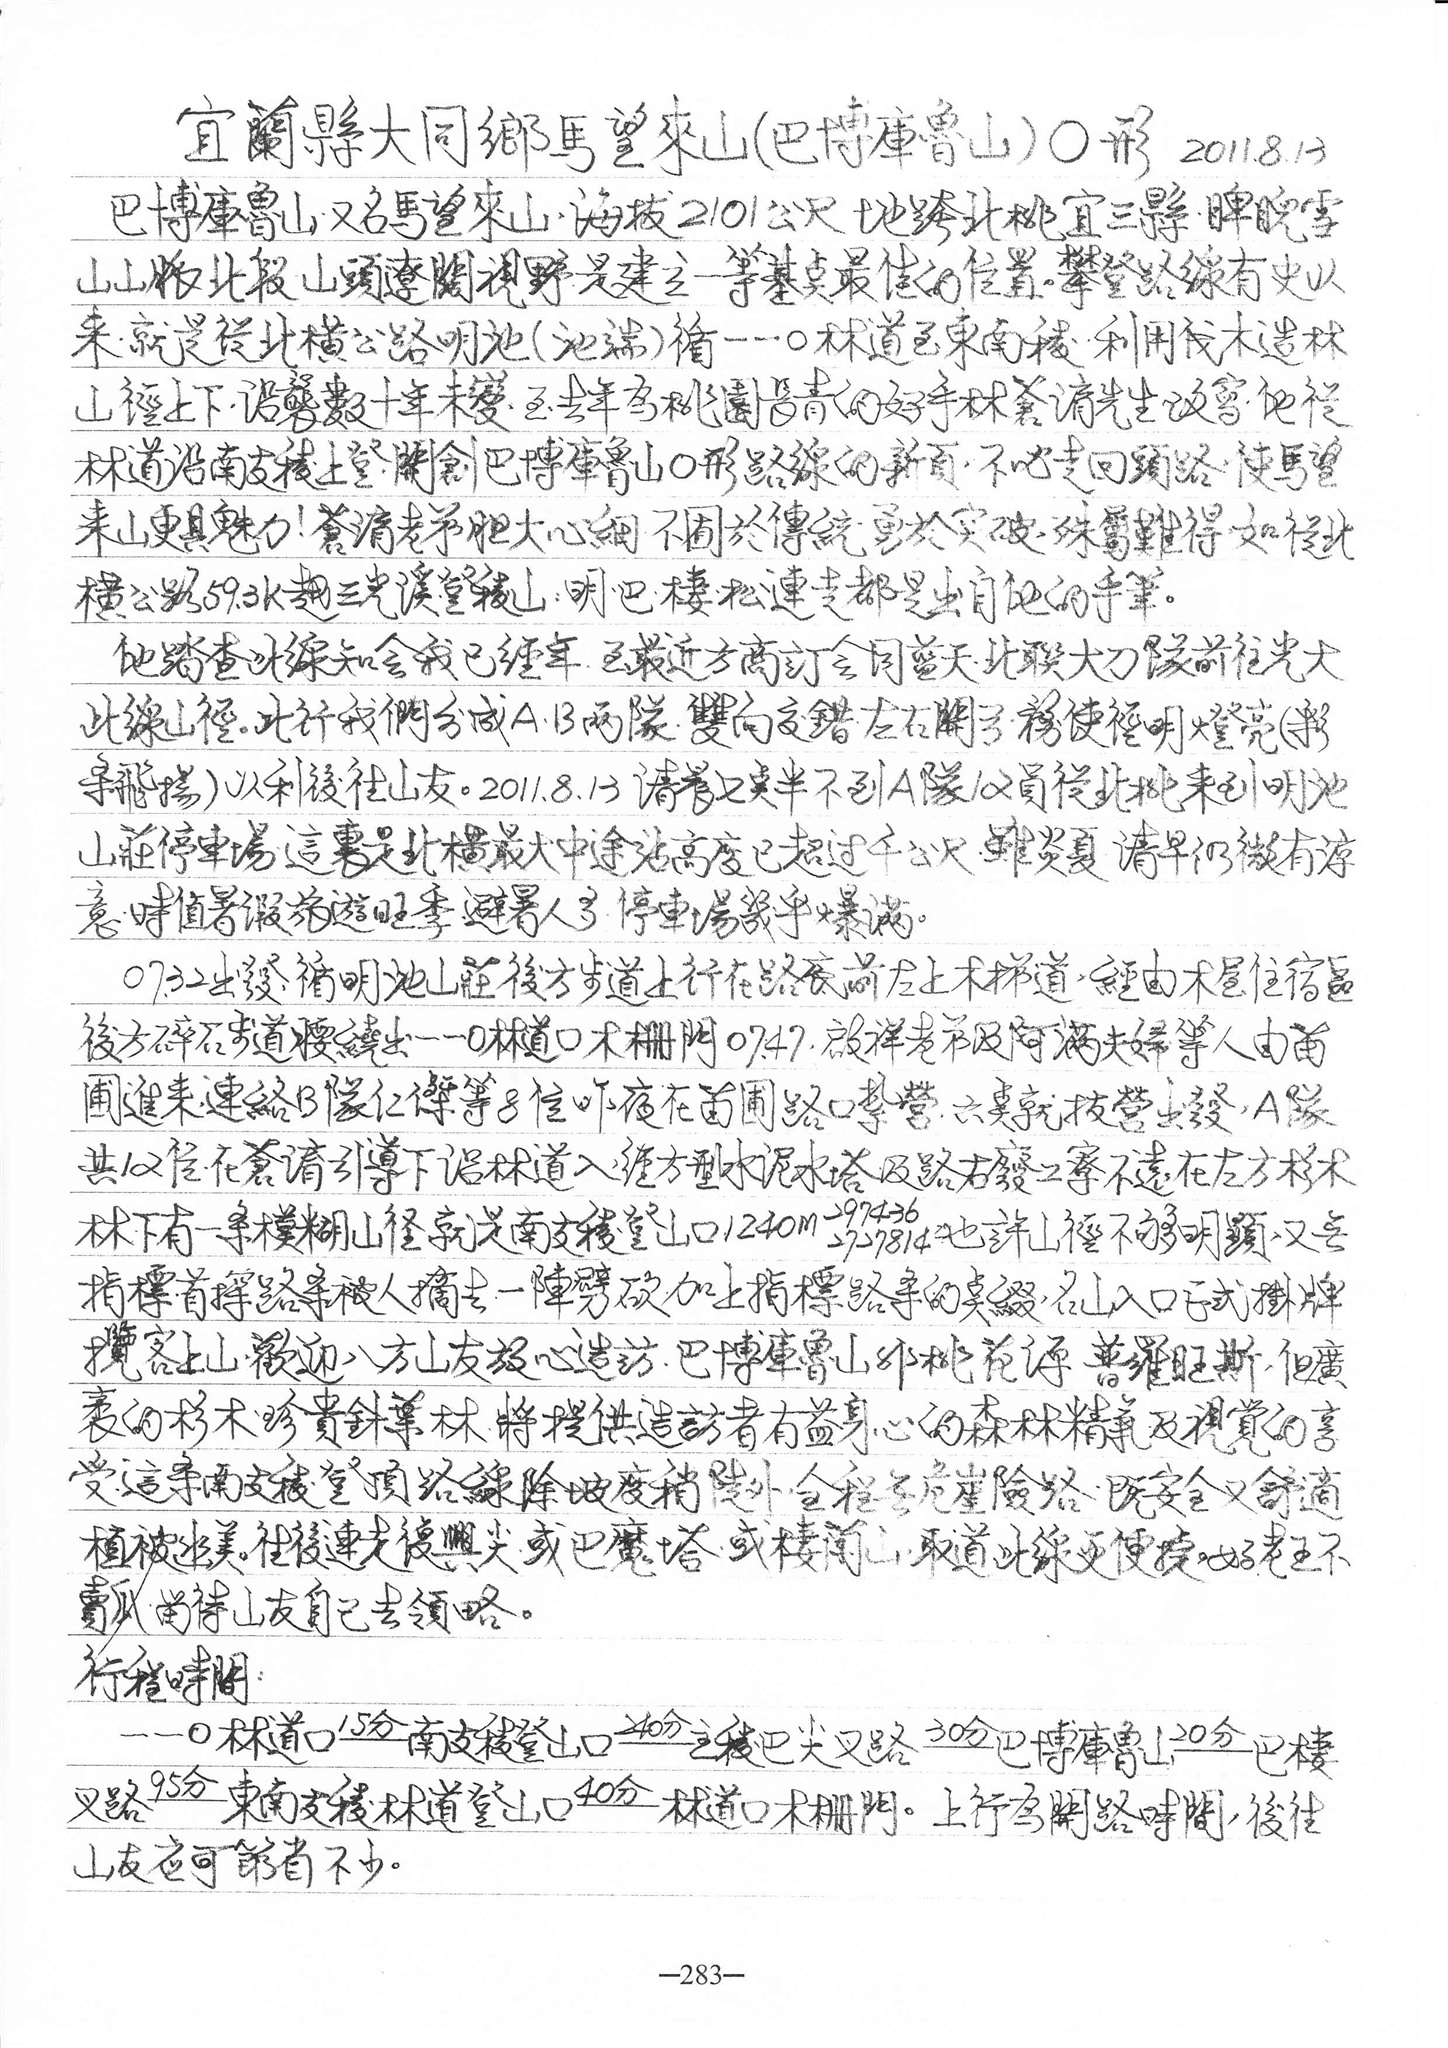 宜蘭縣大同鄉馬望來山(巴博庫魯山)O形 2011.8.13
巴博庫魯山又名馬望來山.海拔2101公尺 地跨北桃宜三縣.睥睨雪
山山脈北段山頭遼闊視野是建立一等基點最佳的位置。攀登路線有史以
來.就是從北橫公路明池(池端)循一一O林道至東南稜.利用伐木造林
山徑上下.沿襲數十年未變.至去年為桃園長青的好手林蒼淯先生改寫.他從
林道沿南支稜上登.開創巴博庫魯山O形路線的新頁.不必走回頭路.使馬望
来山更具魅力!蒼淯老弟胆大心細 不固於傳統.勇於突破.殊屬難得.如從北
橫公路59.3K越三光溪登稜山.明.巴.棲.松連走都是出自他的手筆。
他踏查此線知会我已經年.至最近方商訂会同藍天.北聯大刀隊前往光大
此線山徑。此行我們分成A.B兩隊.雙向交錯.左右開弓.務使徑明燈亮(彩
条飛揚)以利後往山友。2011.8.13 清晨七点半不到A隊12員從北桃来到明池
山莊停車場.這裏是北橫最大中途站高度已超过千公尺.雖炎夏 清早仍微有涼
意.時值暑假旅遊旺季.避暑人多.停車場幾乎爆滿。
07.32出發.循明池山莊後方步道上行在路底前左上木梯道,經由木屋住宿區
後方碎石步道腰繞出一一O林道口木柵門07.47.啟祥老弟及阿滿夫婦等人由苗
圃進来.連絡B隊仁傑等8位昨夜在苗圃路口紮營.六点就拔營出發,A隊
共12位.在蒼淯引導下沿林道入.經方型水泥水塔及路右廢工寮不遠在左方杉木
林下有一条模糊山徑就是南支稜登山口1240M 297436 2727814也許山徑不夠明顯.又無
指標.首探路条被人摘去.一陣劈砍.加上指標路条的点綴,名山入口正式掛牌
攬客上山.歡迎八方山友放心造訪.巴博庫魯山非桃花源 普羅旺斯.但廣
袤的杉木.珍貴針葉林.將提供造訪者有益身心的森林精氣及視覺的享
受.這条南支稜登頂路線除坡度稍陡外.全程無危崖險路.既安全又舒適
植被水美。往後連走復興尖.或巴魔塔.或棲蘭山.取道此線更便捷。好老王不
賣瓜.留待山友自己去領略。
行程時間:
一一O林道口15分南支稜登山口240分主稜巴尖叉路 30分巴博庫魯山20分巴棲
叉路95分東南支稜林道登山口40分林道口木柵門。上行為開路時間,後往
山友应可節省不少。
—283—